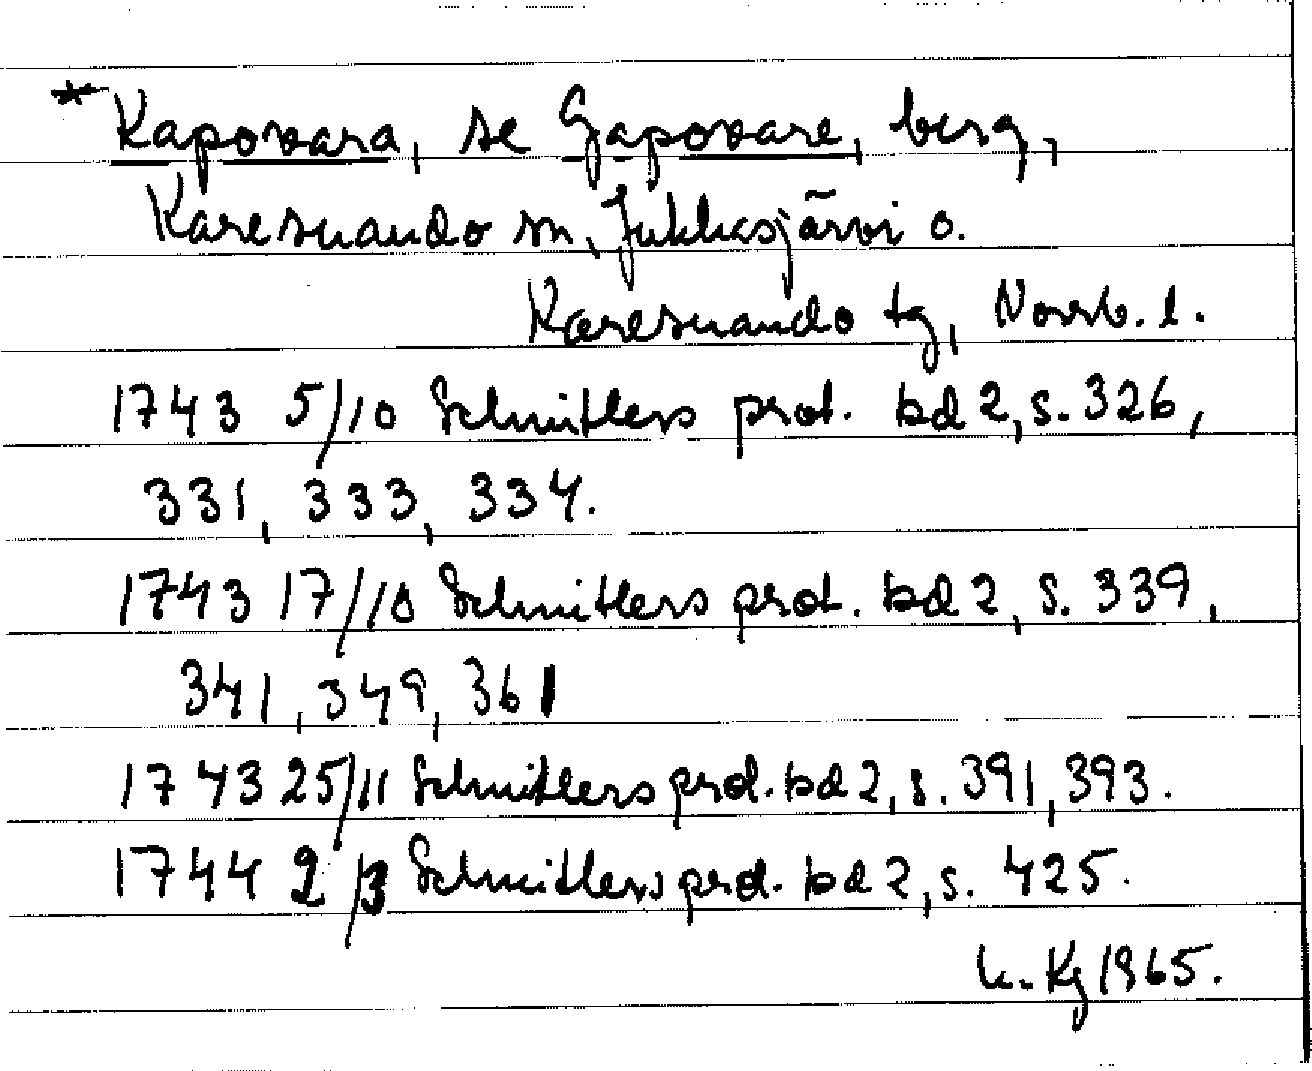 *Kapovara, se Gapovare, berg,
Karesuando sn, Jukkasjärvi o.
Karesuando tg, Norrb. l.
1743 5/10 Schnitlers prot. bd 2, s. 326,
331, 333, 334.
1743 17/10 Schnitlers prot. bd 2, s. 339,
341, 349, 361
1743 25/11 Schnitlers prot. bd 2, s. 391, 393.
1744 2/3 Schnitlers prot. bd 2, s. 425.
K. Kg 1965.